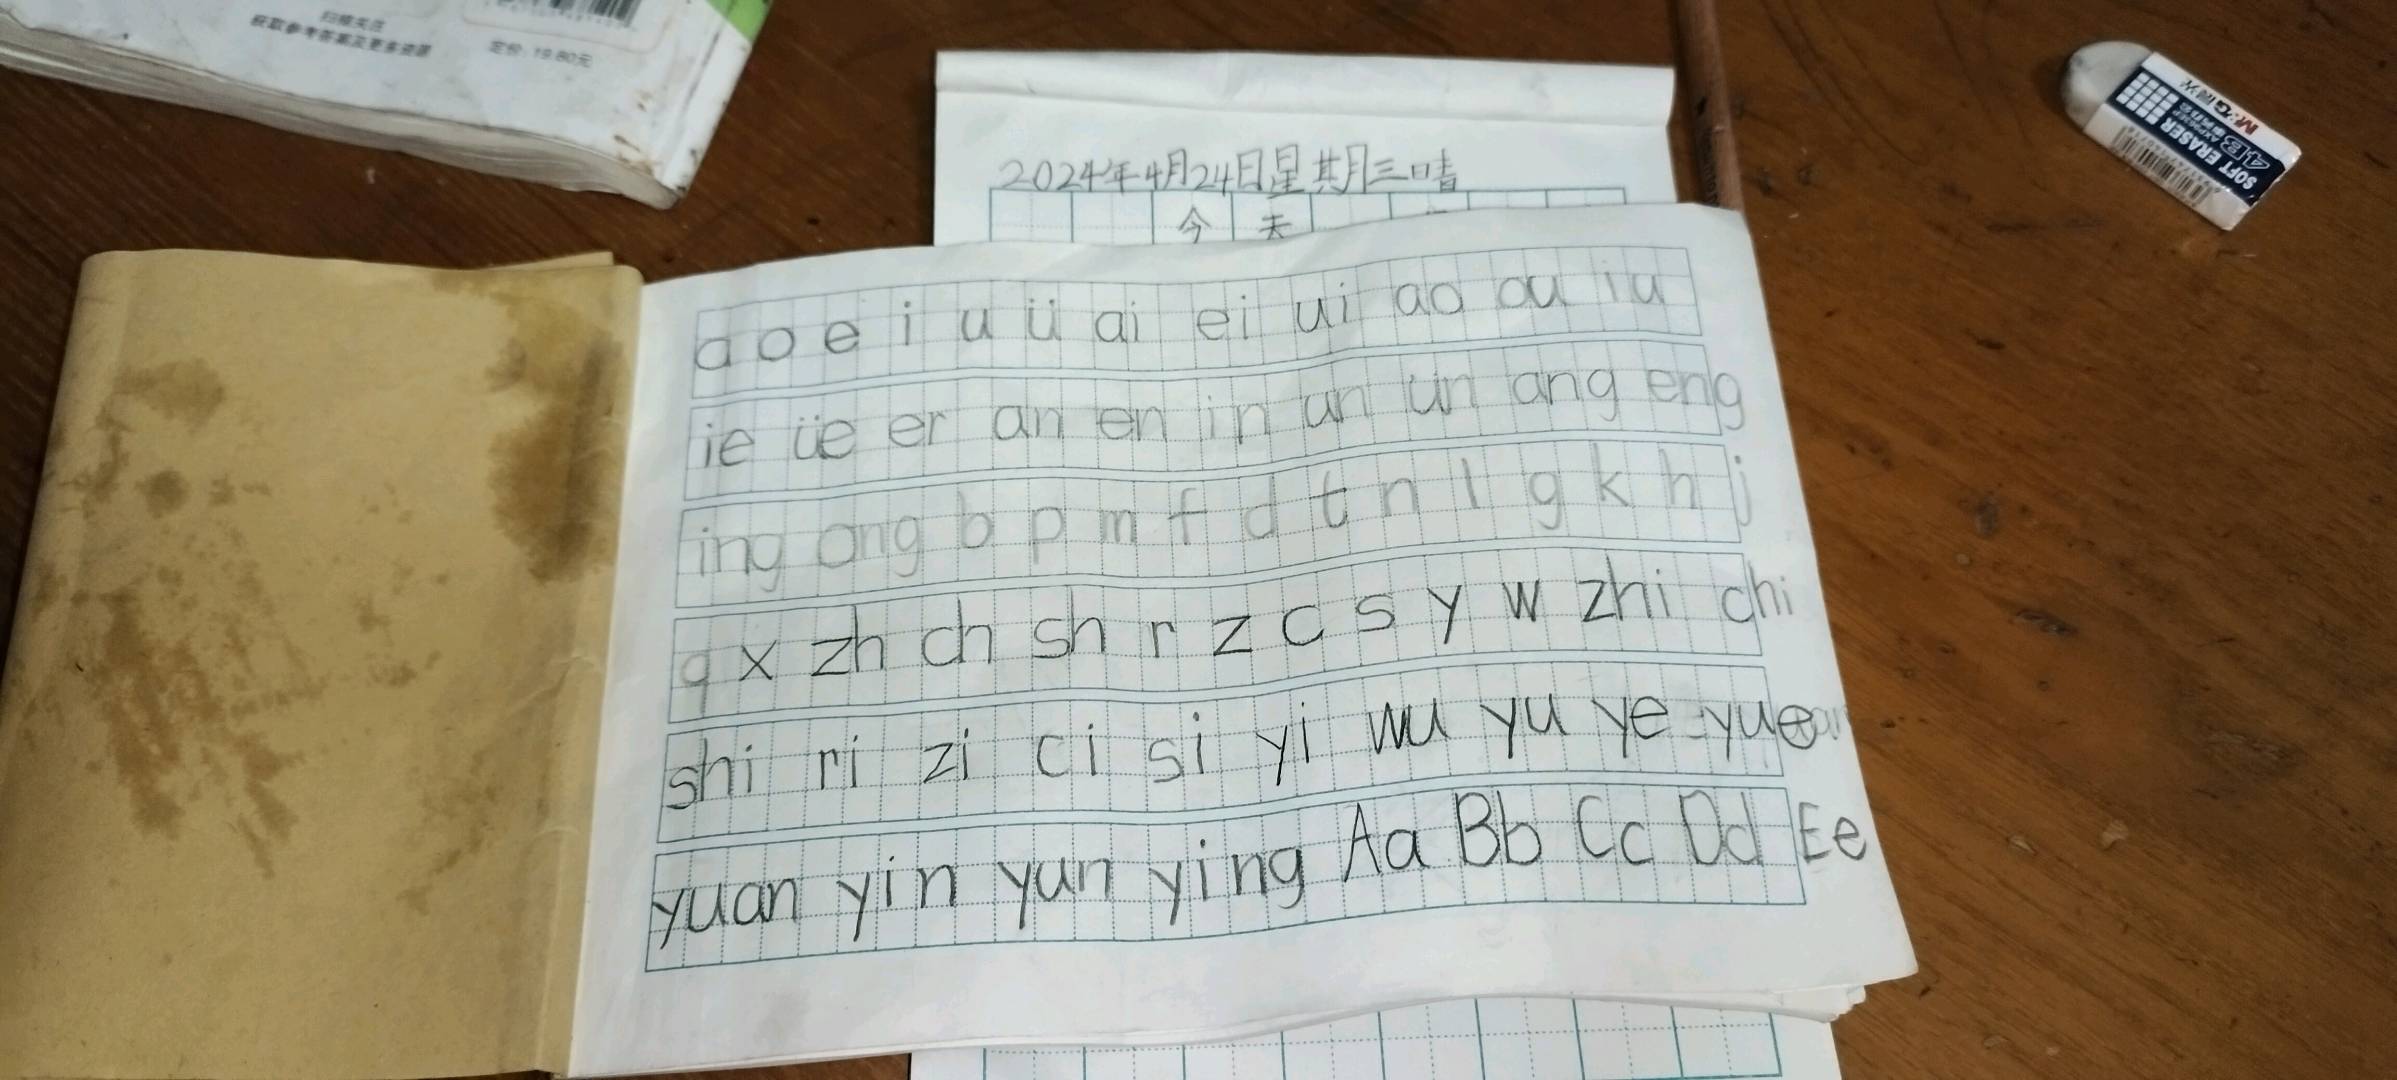 扫描关注
获取参考答案及更多资源
定价:19.80元
2024年4月24日星期三晴
今天
M&G晨光
4B
SOFT ERASER
a o e i u ü ai ei ui ao ou iu
ie üe er an en in un ün ang eng
ing ong b p m f d t n l g k h j
q x zh ch sh r z c s y w zhi chi
shi ri zi ci si yi wu yu ye yue
yuan yin yun ying Aa Bb Cc Dd Ee